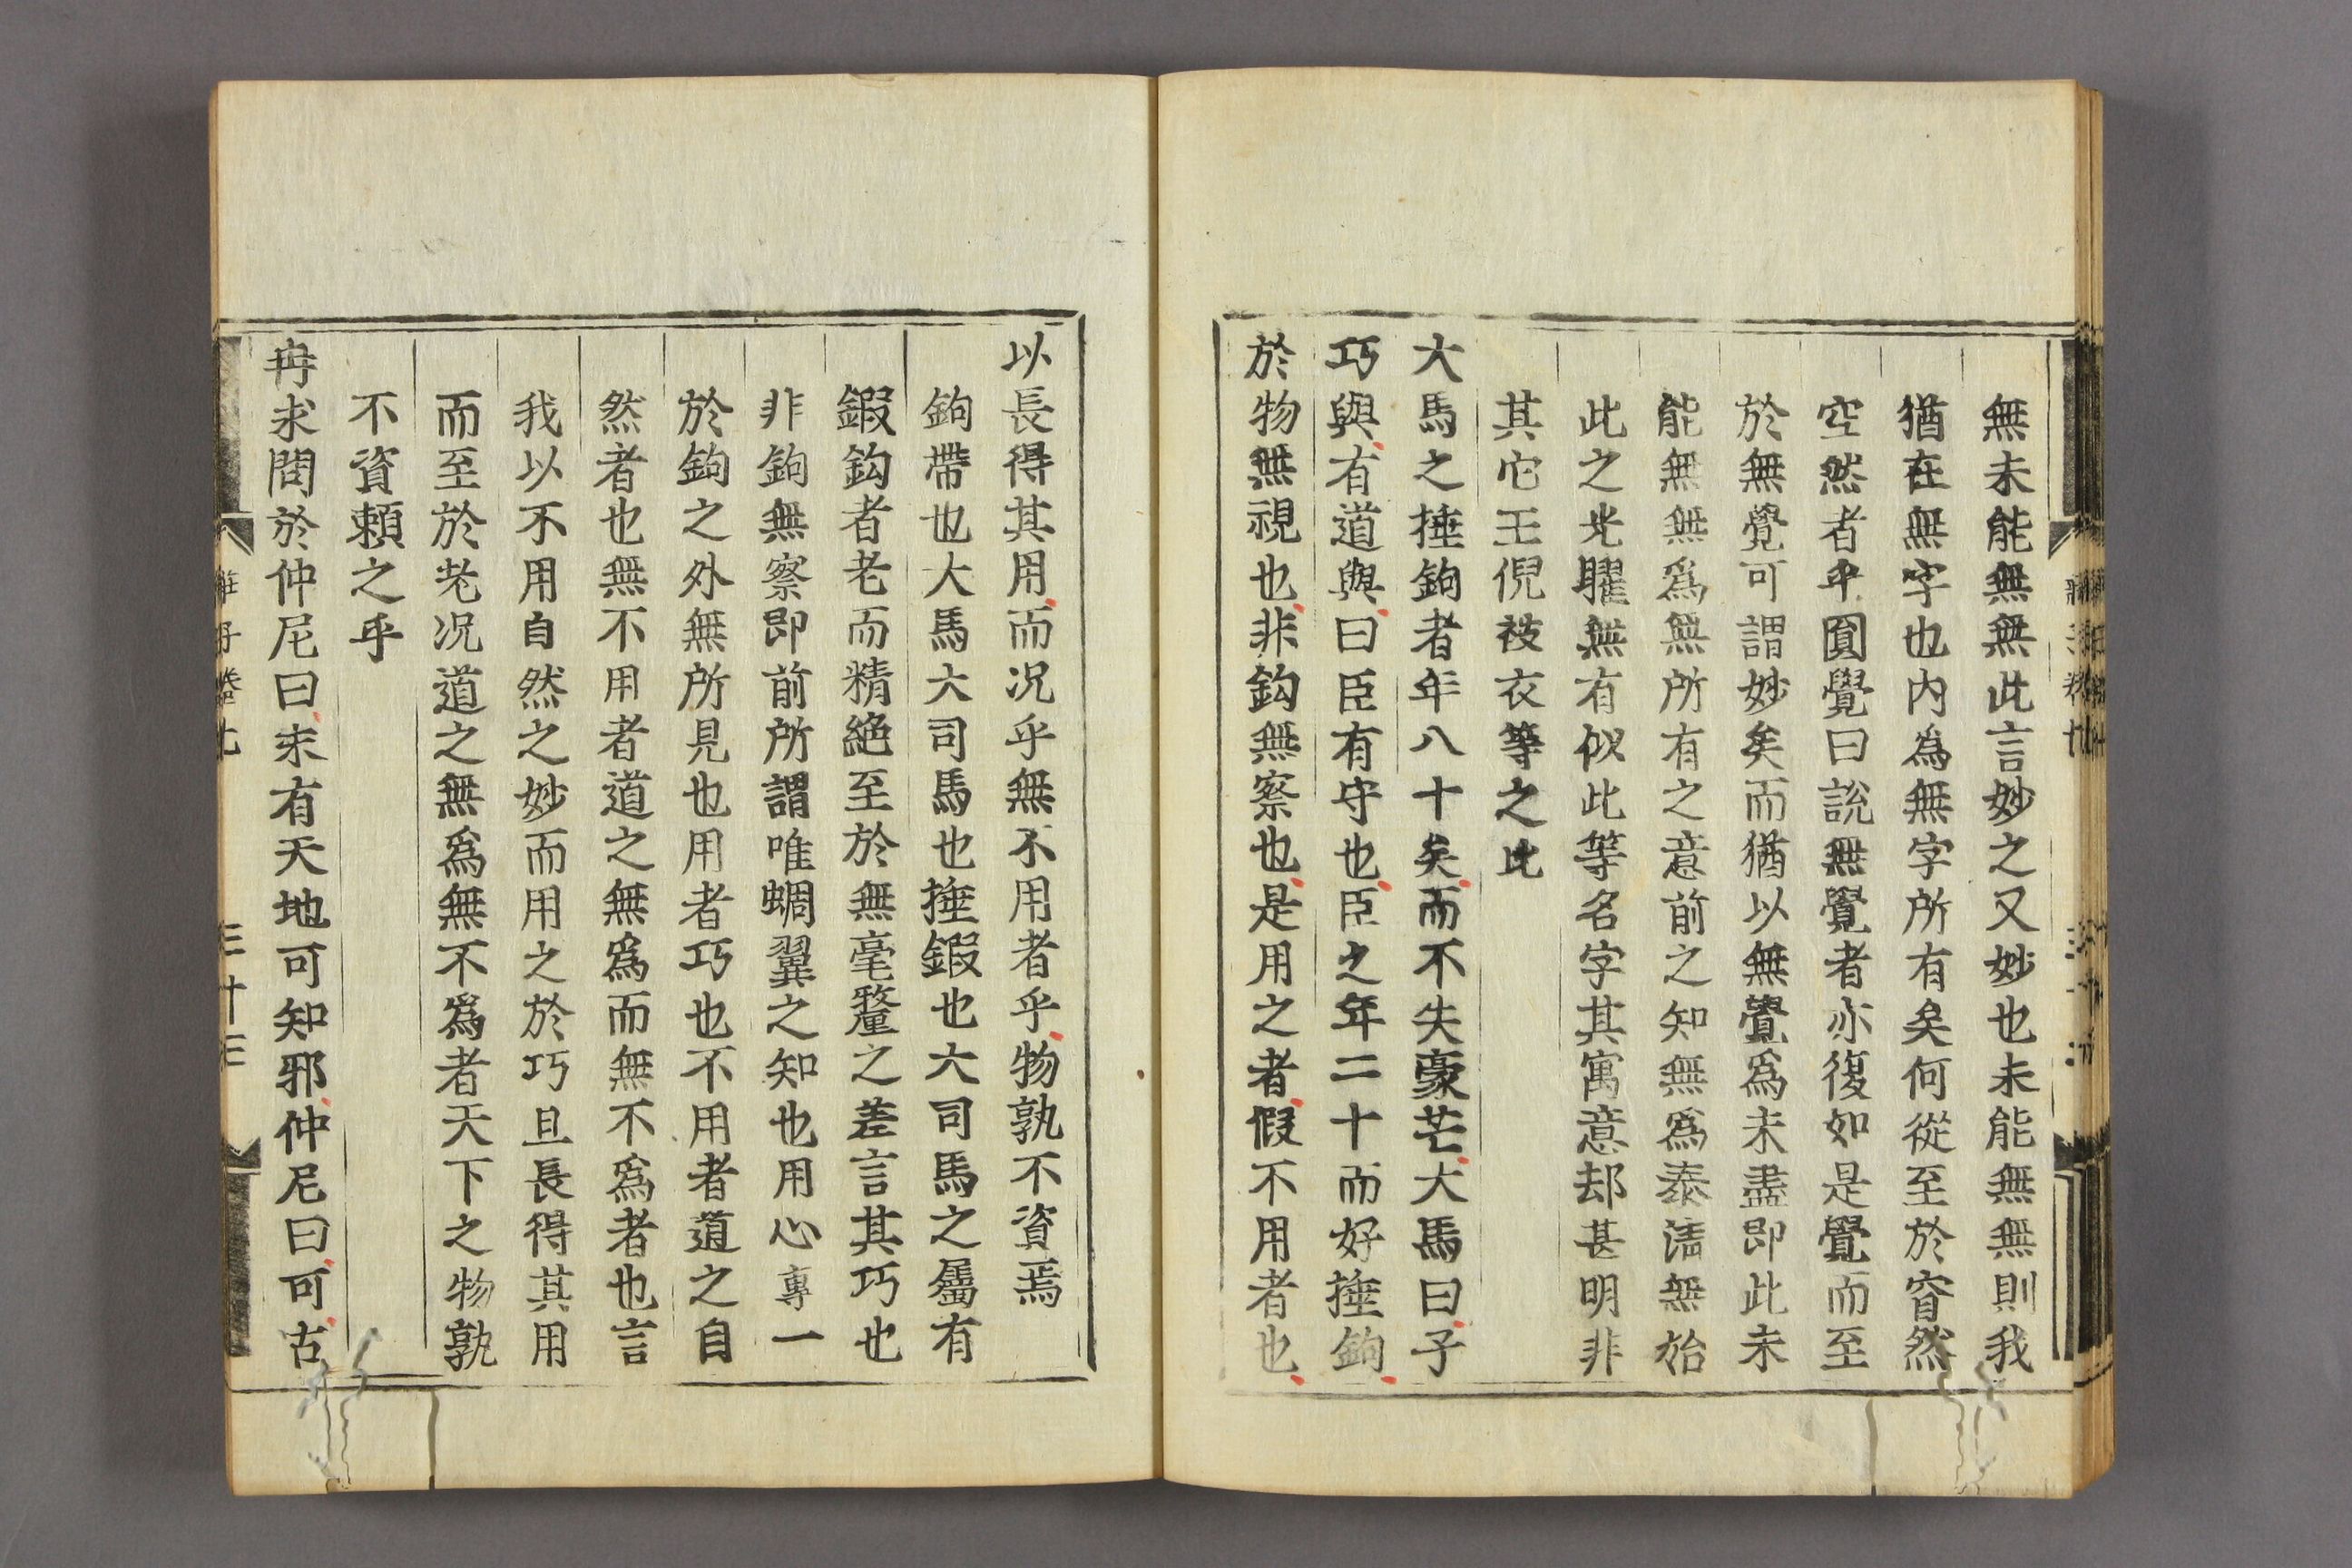 無未能無無此言妙之又妙也未能無無則我
猶在無字也內為無字所有矣何從至於窅然
空然者乎圓覺曰說無覺者亦復如是覺而至
於無覺可謂妙矣而猶以無覺爲未盡即此未
能無無爲無所有之意前之知無爲泰淸無始
此之光曜無有似此等名字其寓意却甚明非
其它王倪被衣等之比
大馬之捶鉤者年八十矣而不失豪芒大馬曰子
巧與有道與曰臣有守也臣之年二十而好捶鉤
於物無視也非鈎無察也是用之者假不用者也
以長得其用而況乎無不用者乎物孰不資焉
鉤帶也大馬大司馬也捶鍜也大司馬之屬有
鍜鈎者老而精絶至於無毫釐之差言其巧也
非鉤無察即前所謂唯蜩翼之知也用心專一
於鉤之外無所見也用者巧也不用者道之自
然者也無不用者道之無爲而無不爲者也言
我以不用自然之妙而用之於巧且長得其用
而至於老況道之無爲無不爲者天下之物孰
不資賴之乎
冉求問於仲尼曰未有天地可知邪仲尼曰可古
莊子卷七
三十三